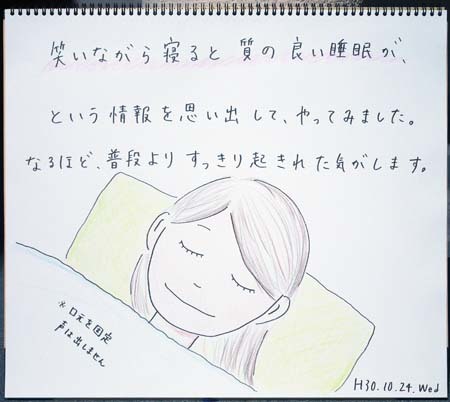 笑いながら寝ると質の良い睡眠が、
という情報を思い出して、やってみました。
なるほど、普段よりすっきり起きれた気がします。
※口元を固定
声は出しません
H30.10.24.Wed